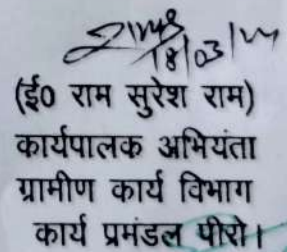 18/03/24
(ई0 राम सुरेश राम)
कार्यपालक अभियंता
ग्रामीण कार्य विभाग
कार्य प्रमंडल पीरो।